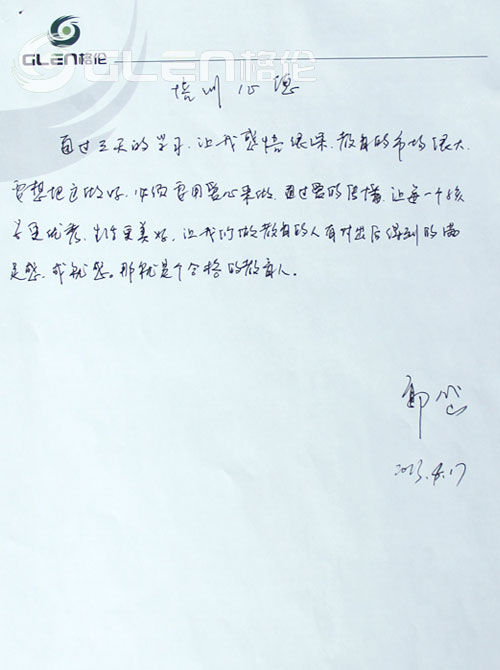 GLEN格伦
GLEN格伦
培训心得
通过三天的学习,让我感悟很深,教育的市场很大,
要想把这做好,必须要用爱心来做,通过爱的传播,让每一个孩
子更优秀,生活更美好,让我们做教育的人有付出后得到的满
足感,成就感。那就是个合格的教育人。
2013.4.17